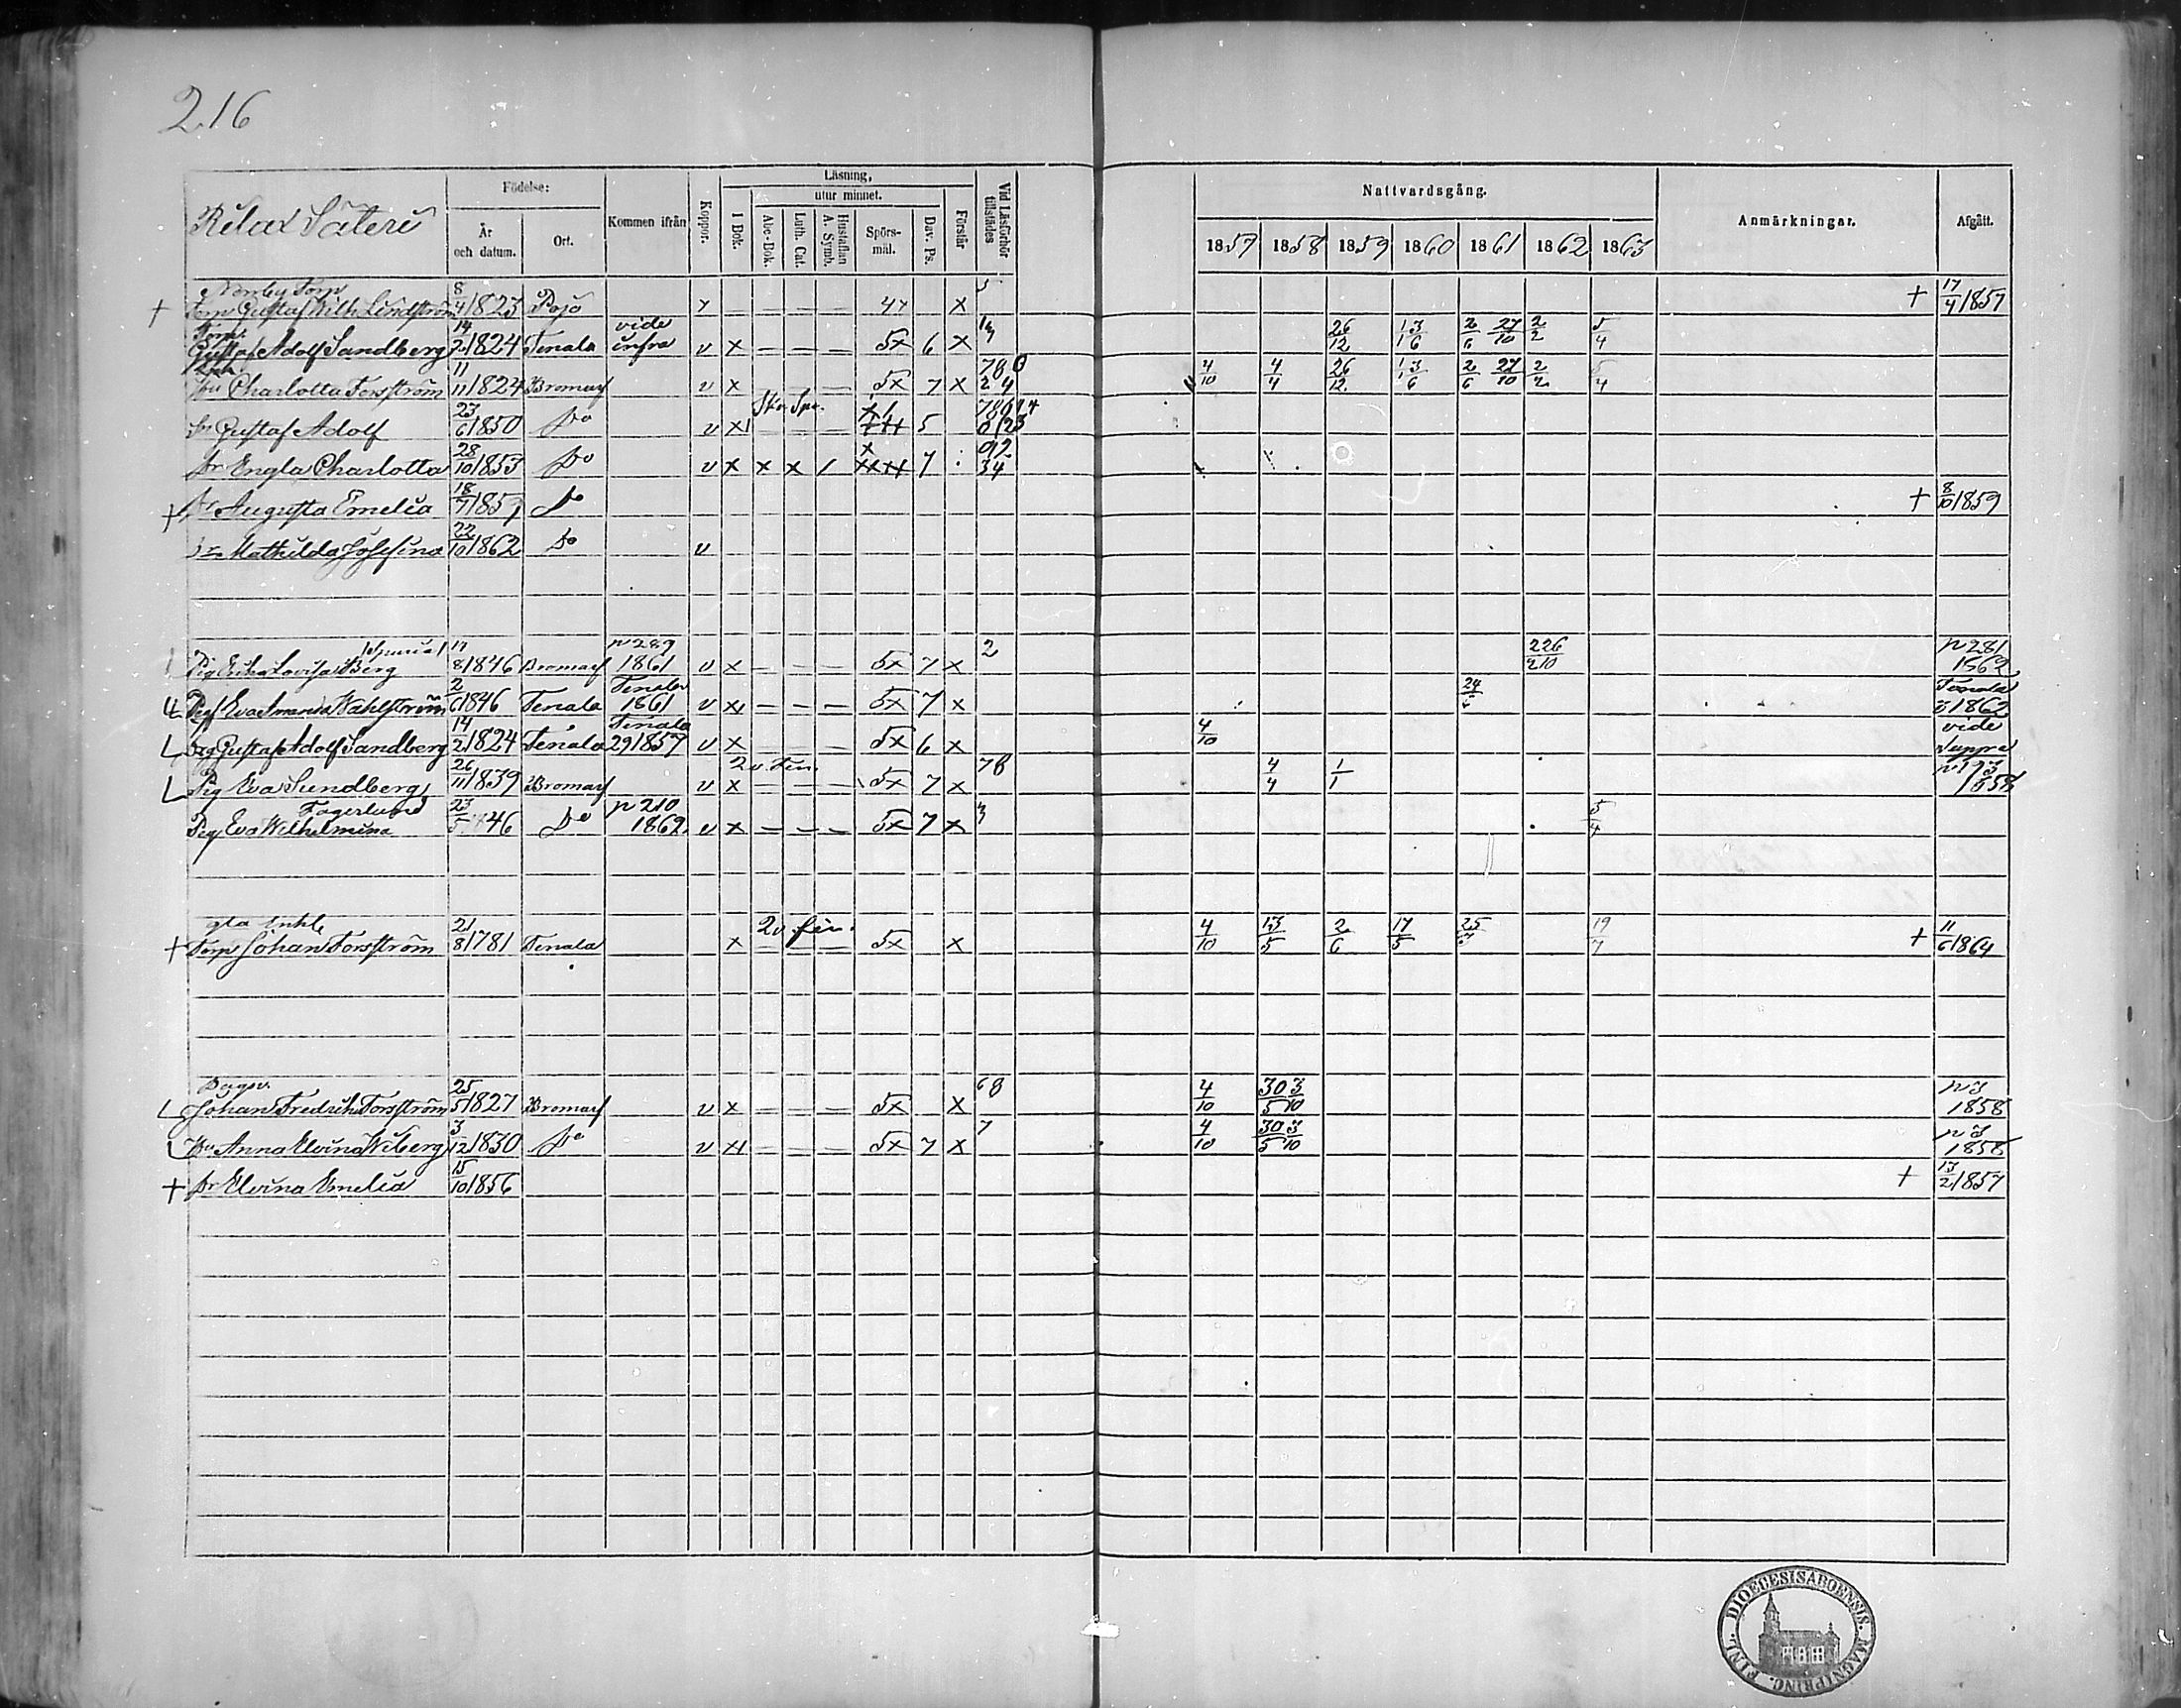 216
Rilax Säteri
Födelse:
År och datum.
Ort.
Kommen ifrån
Koppor.
Läsning,
utur minnet.
I Bok.
Abc-Bok.
Luth. Cat.
Hustaflan A. Symb.
Spörs-mål.
Dav. Ps.
Förstår
Vid Läsförhör tillstädes
Nattvardsgång.
1857 1858 1859 1860 1861 1862 1863
Anmärkningar.
Afgått.
Norrby Torp
† Torp Gustaf Wilh. Lindström 8/4 1823 Pojo 4x x † 17/4 1857
Gustaf Adolf Sandberg 14/2 1824 Tenala vide infra v x — — — 5x 6 x 26/12 13/6 2/6 27/10 2/2 5/4
Hu Charlotta Forsström 11/11 1824 Bromarf v x — — — 5x 7 x 4/10 4/4 26/12 13/6 2/6 27/10 2/2 5/4
Sn Gustaf Adolf 23/6 1850 Do v x 5
Dr Engla Charlotta 28/10 1853 Do v x x x 7 92 34
† Dr Augusta Emelia 18/7 1857 Do † 8/10 1859
Dr Mathilda Josefina 22/10 1862 Do v
Pig Erika Lovisa Berg 8 1846 Bromarf p 289 1861 v x — — — 5x 7 x 2 226/210 p 281 1862
Pig Eva Amanda Wahlström 2/6 1846 Tenala Tenala 1861 v x — — — 5x 7 x 24 Tenala 1862
Drg Gustaf Adolf Sandberg 14/2 1824 Tenala Tenala 29 1857 v x — — — 5x 6 x 4/10 vide supra
Pig Eva Sundberg 26/11 1839 Bromarf v x — — — 5x 7 x 78 4/4 1/1 1858
Fagerlund
Pig Eva Wilhelmina 23/5 46 Do p 210 1862 v x — — — 5x 7 x 5/4
gla Enkl
† Torp Johan Forsström 21/8 1781 Tenala x 5x x 4/10 13/5 2/6 17/5 25 19/7 † 11/6 1864
Johan Fredrik Forsström 25/5 1827 Bromarf v x — — — 5x x 68 4/10 30/5 3/10 1858
Hu Anna Elvina Wiberg 3/12 1830 Do v x — — — 5x 7 x 7 4/10 30/5 3/10 1858
† Dr Elvina Emelia 15/10 1856 † 13/2 1857
DIOECESIS ABOENSIS. MAGNI PRINC. FINL.